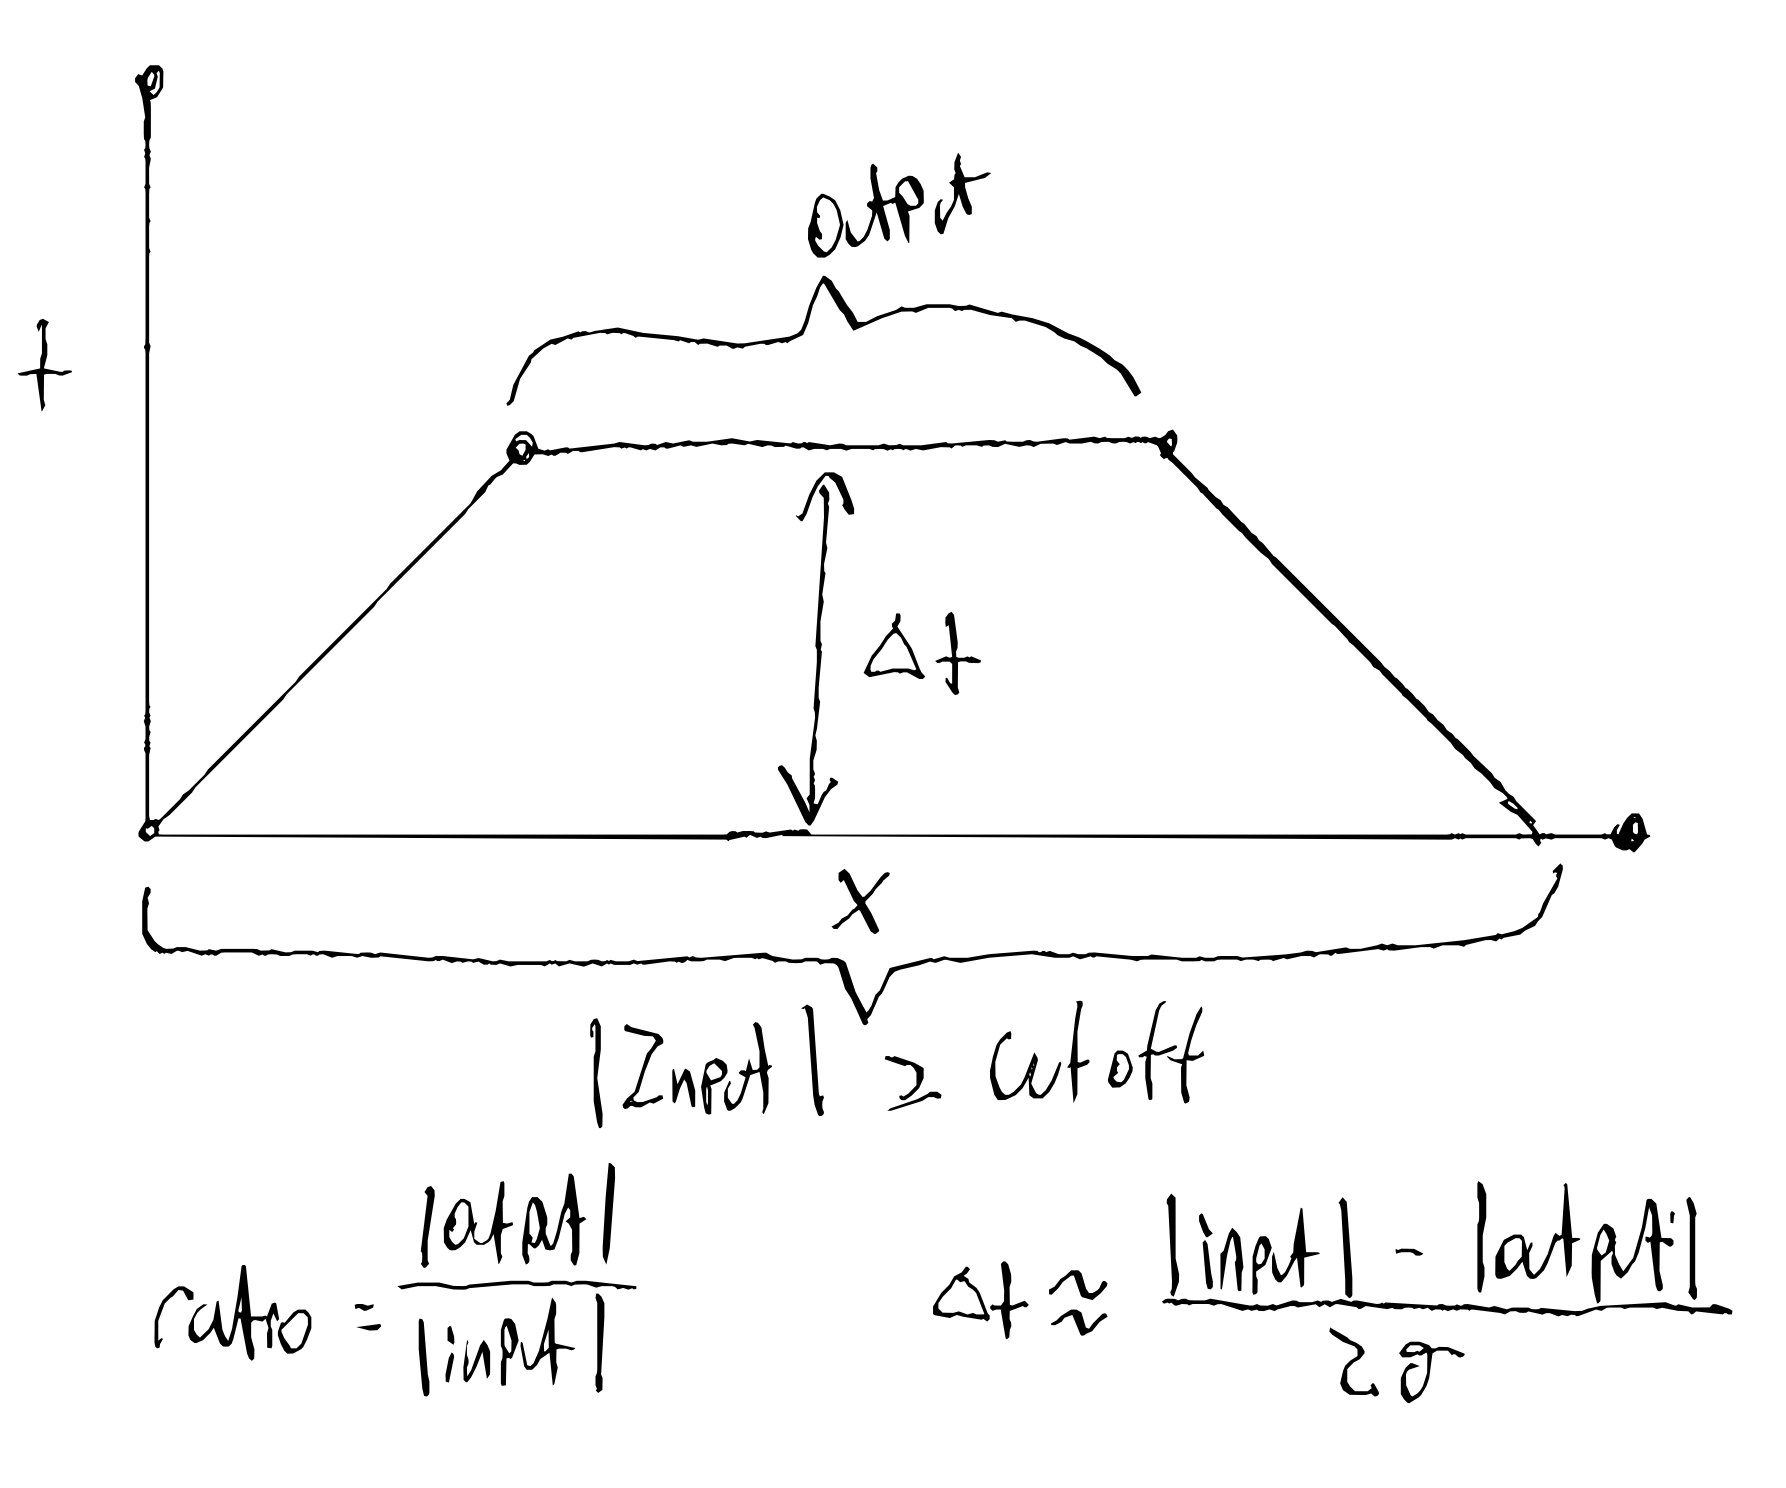 output
t
Δt
x
|Input| ≥ cutoff
ratio = |output| / |input|
Δt ≈ |input| - |output| / 2σ